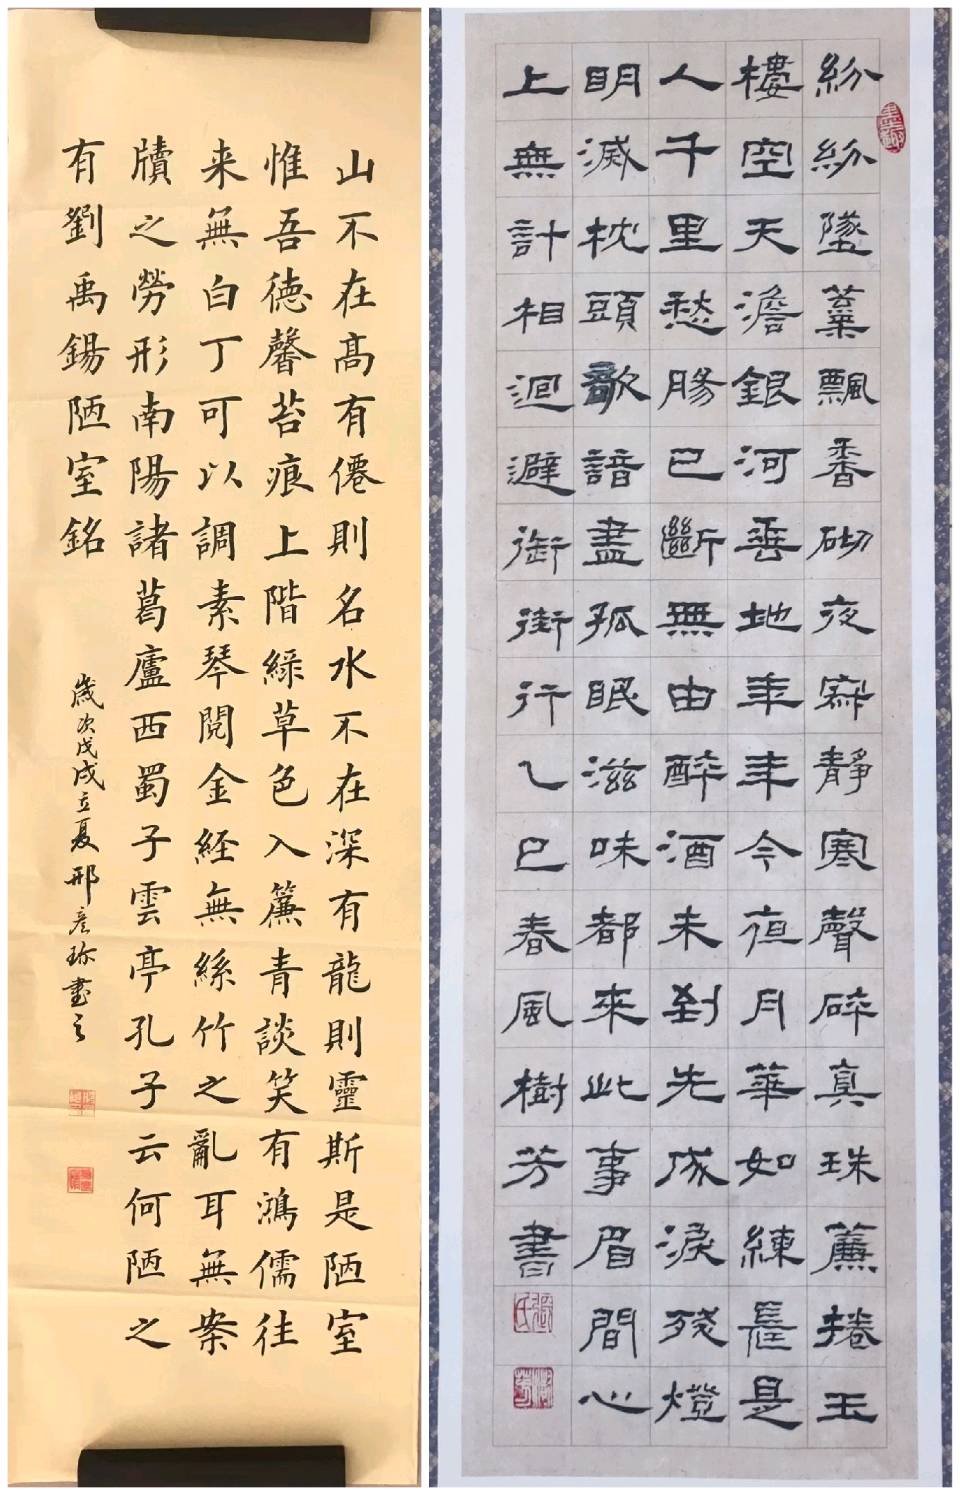 山不在高有僊則名水不在深有龍則靈斯是陋室
惟吾德馨苔痕上階綠草色入簾青談笑有鴻儒往
来無白丁可以調素琴閱金経無絲竹之亂耳無案
牘之勞形南陽諸葛廬西蜀子雲亭孔子云何陋之
有劉禹錫陋室銘
歲次戊戌立夏邢彦珍書之
紛紛墜葉飄香砌夜寂靜寒聲碎真珠簾捲玉
樓空天澹銀河垂地年年今夜月華如練長是
人千里愁腸已斷無由醉酒未到先成淚殘燈
明滅枕頭欹諳盡孤眠滋味都來此事眉間心
上無計相迴避御街行乙巳春風樹芳書